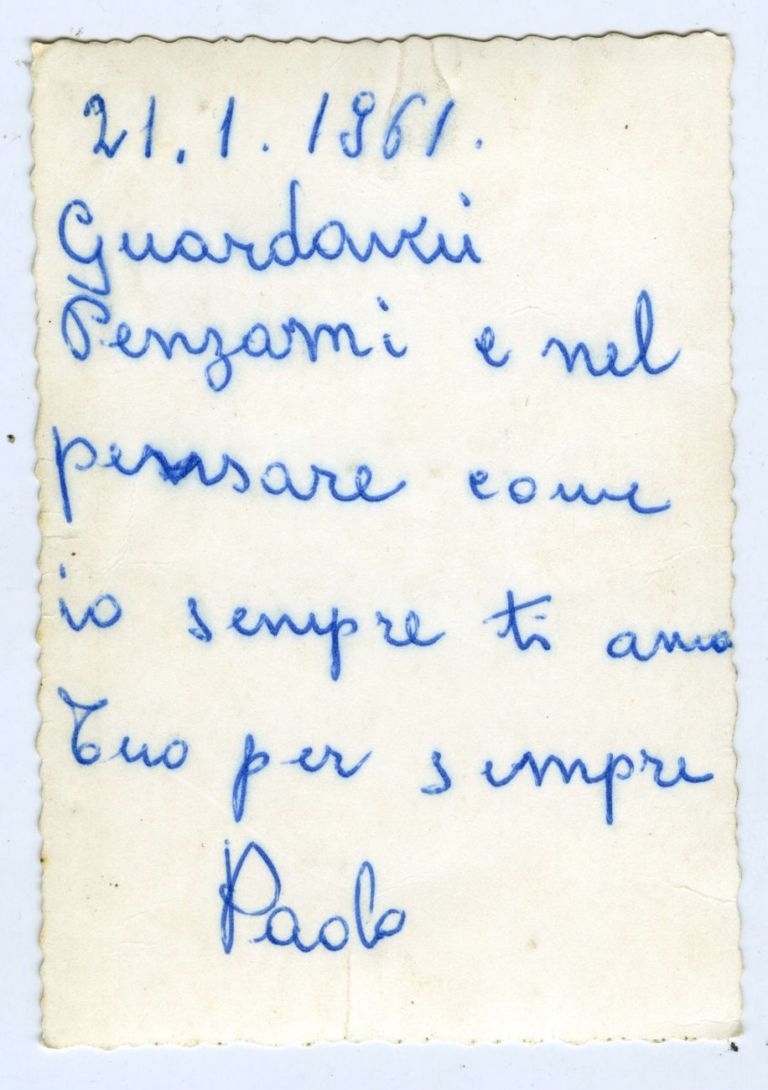 21.1.1961.
Guardami
Penzami e nel
pensare come
io sempre ti amo
Tuo per sempre
Paolo